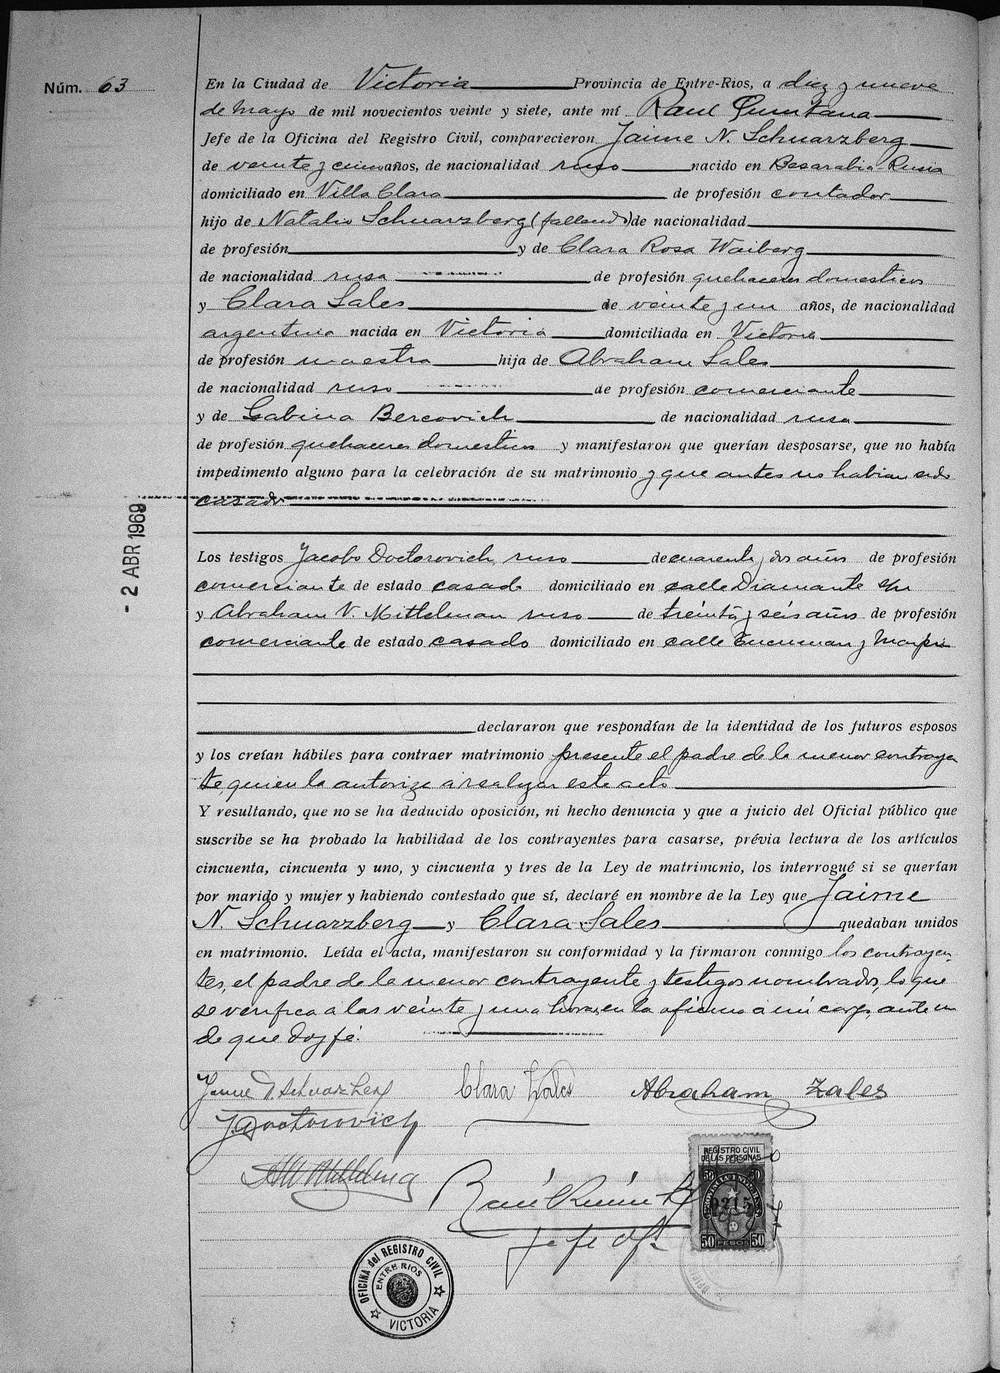 Núm. 63
En la Ciudad de Victoria Provincia de Entre-Rios, a diez y nueve
de mayo de mil novecientos veinte y siete, ante mí Raul Quintana
Jefe de la Oficina del Registro Civil, comparecieron Jaime N. Schuarzberg
de veinte y cinco años, de nacionalidad ruso nacido en Besarabia Rusia
domiciliado en Villa Clara de profesión contador
hijo de Natalio Schuarzberg (fallecido) de nacionalidad
de profesión y de Clara Rosa Waiberg
de nacionalidad rusa de profesión quehaceres domesticos
y Clara Sales de veinte y un años, de nacionalidad
argentina nacida en Victoria domiciliada en Victoria
de profesión maestra hija de Abraham Sales
de nacionalidad ruso de profesión comerciante
y de Gabina Bercovich de nacionalidad rusa
de profesión quehaceres domesticos y manifestaron que querían desposarse, que no había
impedimento alguno para la celebración de su matrimonio y que antes no habian sido
casados
- 2 ABR 1969
Los testigos Jacobo Doctorovich, ruso de cuarenta y dos años de profesión
comerciante de estado casado domiciliado en calle Diamante s/n
y Abraham V. Mittelman ruso de treinta y seis años de profesión
comerciante de estado casado domiciliado en calle Tucuman y
declararon que respondían de la identidad de los futuros esposos
y los creían hábiles para contraer matrimonio presente el padre de la menor contrayen
te, quien la autoriza a realizar este acto
Y resultando, que no se ha deducido oposición, ni hecho denuncia y que a juicio del Oficial público que
suscribe se ha probado la habilidad de los contrayentes para casarse, prévia lectura de los artículos
cincuenta, cincuenta y uno, y cincuenta y tres de la Ley de matrimonio, los interrogué si se querían
por marido y mujer y habiendo contestado que sí, declaré en nombre de la Ley que Jaime
N. Schuarzberg y Clara Sales quedaban unidos
en matrimonio. Leída el acta, manifestaron su conformidad y la firmaron conmigo los contrayen-
tes, el padre de la menor contrayente y testigos nombrados, lo que
se verifica a las veinte y una horas, en la oficina a mi cargo, ante mi
de que doy fé.
Clara Zales Abraham Zales
J. Doctorovich
Jefe Of.
REGISTRO CIVIL
DE LAS PERSONAS
50 50
0215
50 PESOS 50
OFICINA del REGISTRO CIVIL
ENTRE RIOS
VICTORIA